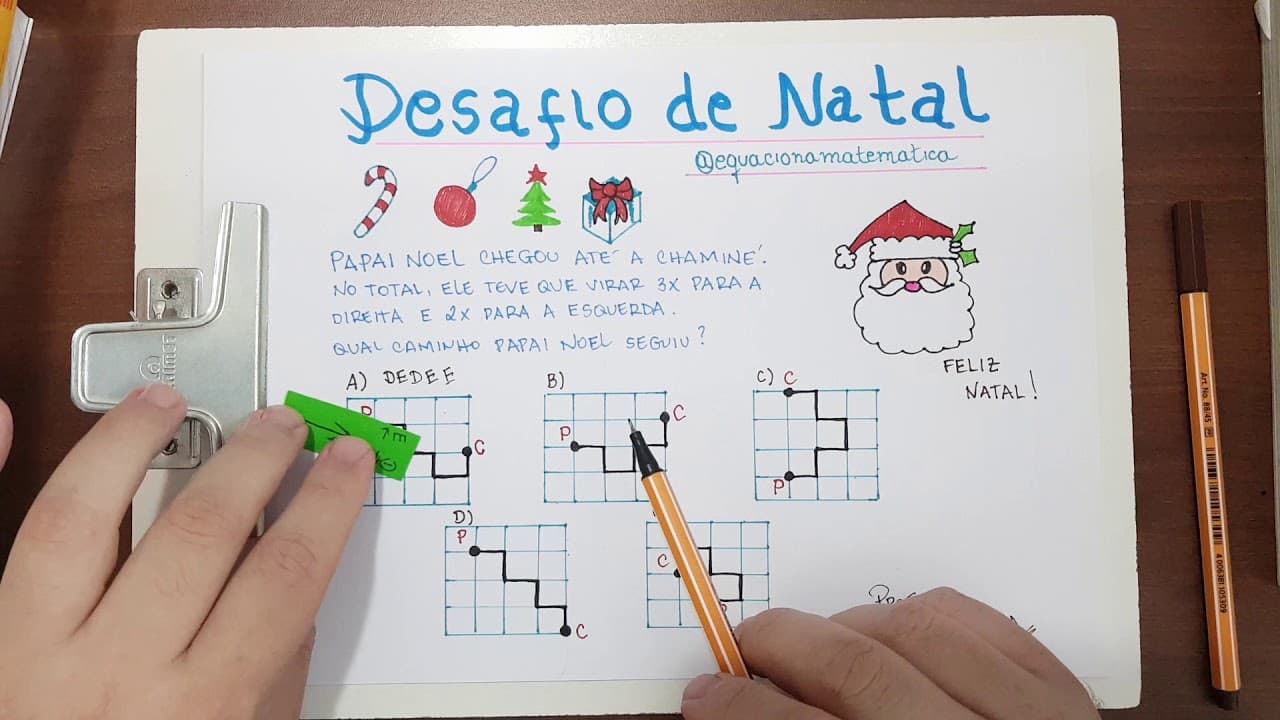 Desafio de Natal
@equacionamatematica
PAPAI NOEL CHEGOU ATÉ A CHAMINÉ.
NO TOTAL, ELE TEVE QUE VIRAR 3X PARA A
DIREITA E 2X PARA A ESQUERDA.
QUAL CAMINHO PAPAI NOEL SEGUIU?
FELIZ
NATAL!
A) DEDEE
B)
C)
P
C
P
C
C
P
E
D
D)
P
C
C
P
Art. No. 88/45
4 006381 105309